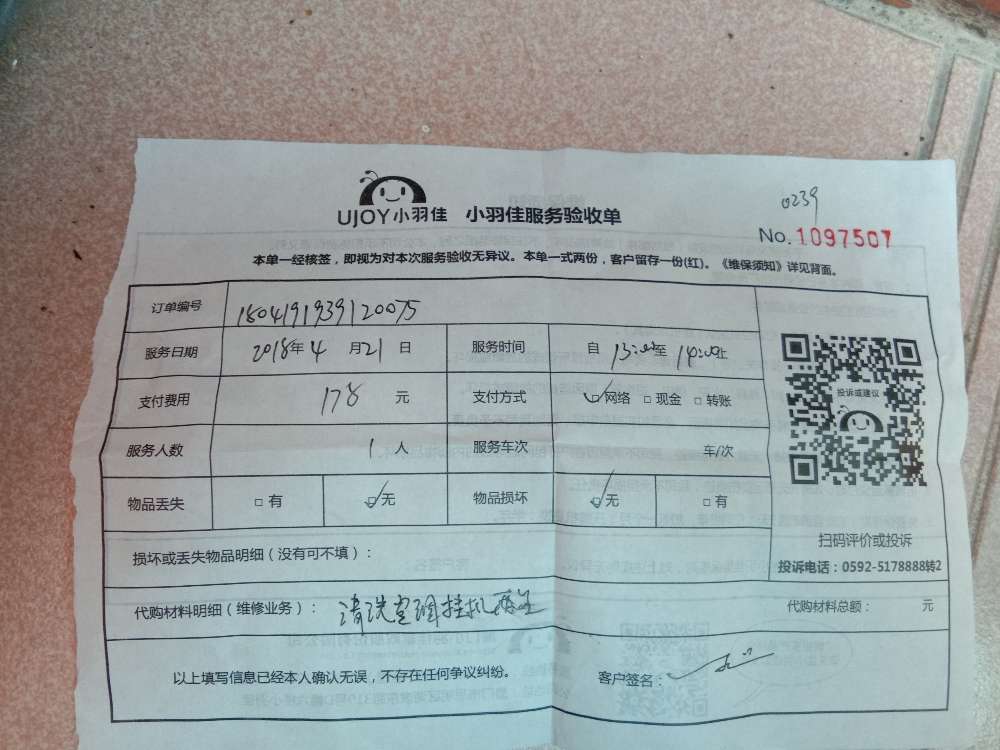 0239
UJOY小羽佳 小羽佳服务验收单
No. 1097507
本单一经核签，即视为对本次服务验收无异议。本单一式两份，客户留存一份(红)。《维保须知》详见背面。
订单编号 1804191939120075
服务日期 2018年4月21日 服务时间 自13:00至14:00止
支付费用 178元 支付方式 ☑网络 □现金 □转账
投诉或建议
服务人数 1人 服务车次 车/次
物品丢失 □有 ☑无 物品损坏 ☑无 □有
扫码评价或投诉
损坏或丢失物品明细（没有可不填）：
投诉电话：0592-5178888转2
代购材料明细（维修业务）：清洗空调挂机两台 代购材料总额： 元
以上填写信息已经本人确认无误，不存在任何争议纠纷。 客户签名：